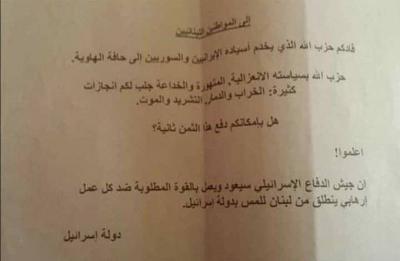 إلى المواطنين اللبنانيين
قادكم حزب الله الذي يخدم أسياده الإيرانيين والسوريين إلى حافة الهاوية.
حزب الله بسياسته الانعزالية, المتهورة والخداعة جلب لكم انجازات
كثيرة: الخراب والدمار, التشريد والموت.
هل بإمكانكم دفع هذا الثمن ثانية؟
اعلموا!
إن جيش الدفاع الإسرائيلي سيعود ويعمل بالقوة المطلوبة ضد كل عمل
إرهابي ينطلق من لبنان للمس بدولة إسرائيل.
دولة إسرائيل